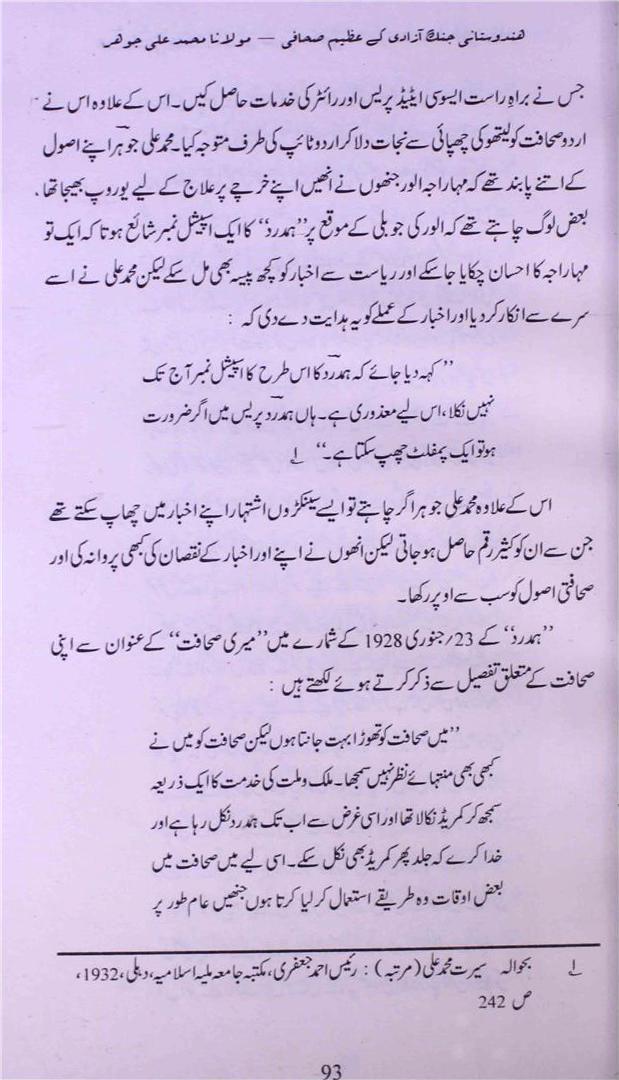 ہندوستانی جنگ آزادی کے عظیم صحافی — مولانا محمد علی جوہر
جس نے براہِ راست ایسوسی ایٹیڈ پریس اور رائٹر کی خدمات حاصل کیں۔ اس کے علاوہ اس نے
اردو صحافت کو لیتھو کی چھپائی سے نجات دلا کر اردو ٹائپ کی طرف متوجہ کیا۔ محمد علی جوہر اپنے اصول
کے اتنے پابند تھے کہ مہاراجہ الور جنھوں نے انھیں اپنے خرچے پر علاج کے لیے یوروپ بھیجا تھا،
بعض لوگ چاہتے تھے کہ الور کی جوبلی کے موقع پر ”ہمدرد“ کا ایک اسپیشل نمبر شائع ہو تا کہ ایک تو
مہاراجہ کا احسان چکایا جا سکے اور ریاست سے اخبار کو کچھ پیسہ بھی مل سکے لیکن محمد علی نے اسے
سرے سے انکار کر دیا اور اخبار کے عملے کو یہ ہدایت دے دی کہ :
”کہہ دیا جائے کہ ہمدرد کا اس طرح کا اسپیشل نمبر آج تک
نہیں نکلا، اس لیے معذوری ہے۔ ہاں ہمدرد پریس میں اگر ضرورت
ہو تو ایک پمفلٹ چھپ سکتا ہے۔“ ۱؎
اس کے علاوہ محمد علی جوہر اگر چاہتے تو ایسے سینکڑوں اشتہار اپنے اخبار میں چھاپ سکتے تھے
جن سے ان کو کثیر رقم حاصل ہو جاتی لیکن انھوں نے اپنے اور اخبار کے نقصان کی کبھی پروا نہ کی اور
صحافتی اصول کو سب سے اوپر رکھا۔
”ہمدرد“ کے 23/جنوری 1928 کے شمارے میں ”میری صحافت“ کے عنوان سے اپنی
صحافت کے متعلق تفصیل سے ذکر کرتے ہوئے لکھتے ہیں :
”میں صحافت کو تھوڑا بہت جانتا ہوں لیکن صحافت کو میں نے
کبھی بھی منتہائے نظر نہیں سمجھا۔ ملک و ملت کی خدمت کا ایک ذریعہ
سمجھ کر کمریڈ نکالا تھا اور اسی غرض سے اب تک ہمدرد نکل رہا ہے اور
خدا کرے کہ جلد پھر کمریڈ بھی نکل سکے۔ اسی لیے میں صحافت میں
بعض اوقات وہ طریقے استعمال کر لیا کرتا ہوں جنھیں عام طور پر
۱؎ بحوالہ سیرت محمد علی (مرتبہ) : رئیس احمد جعفری، مکتبہ جامعہ ملیہ اسلامیہ، دہلی، 1932،
ص 242
93